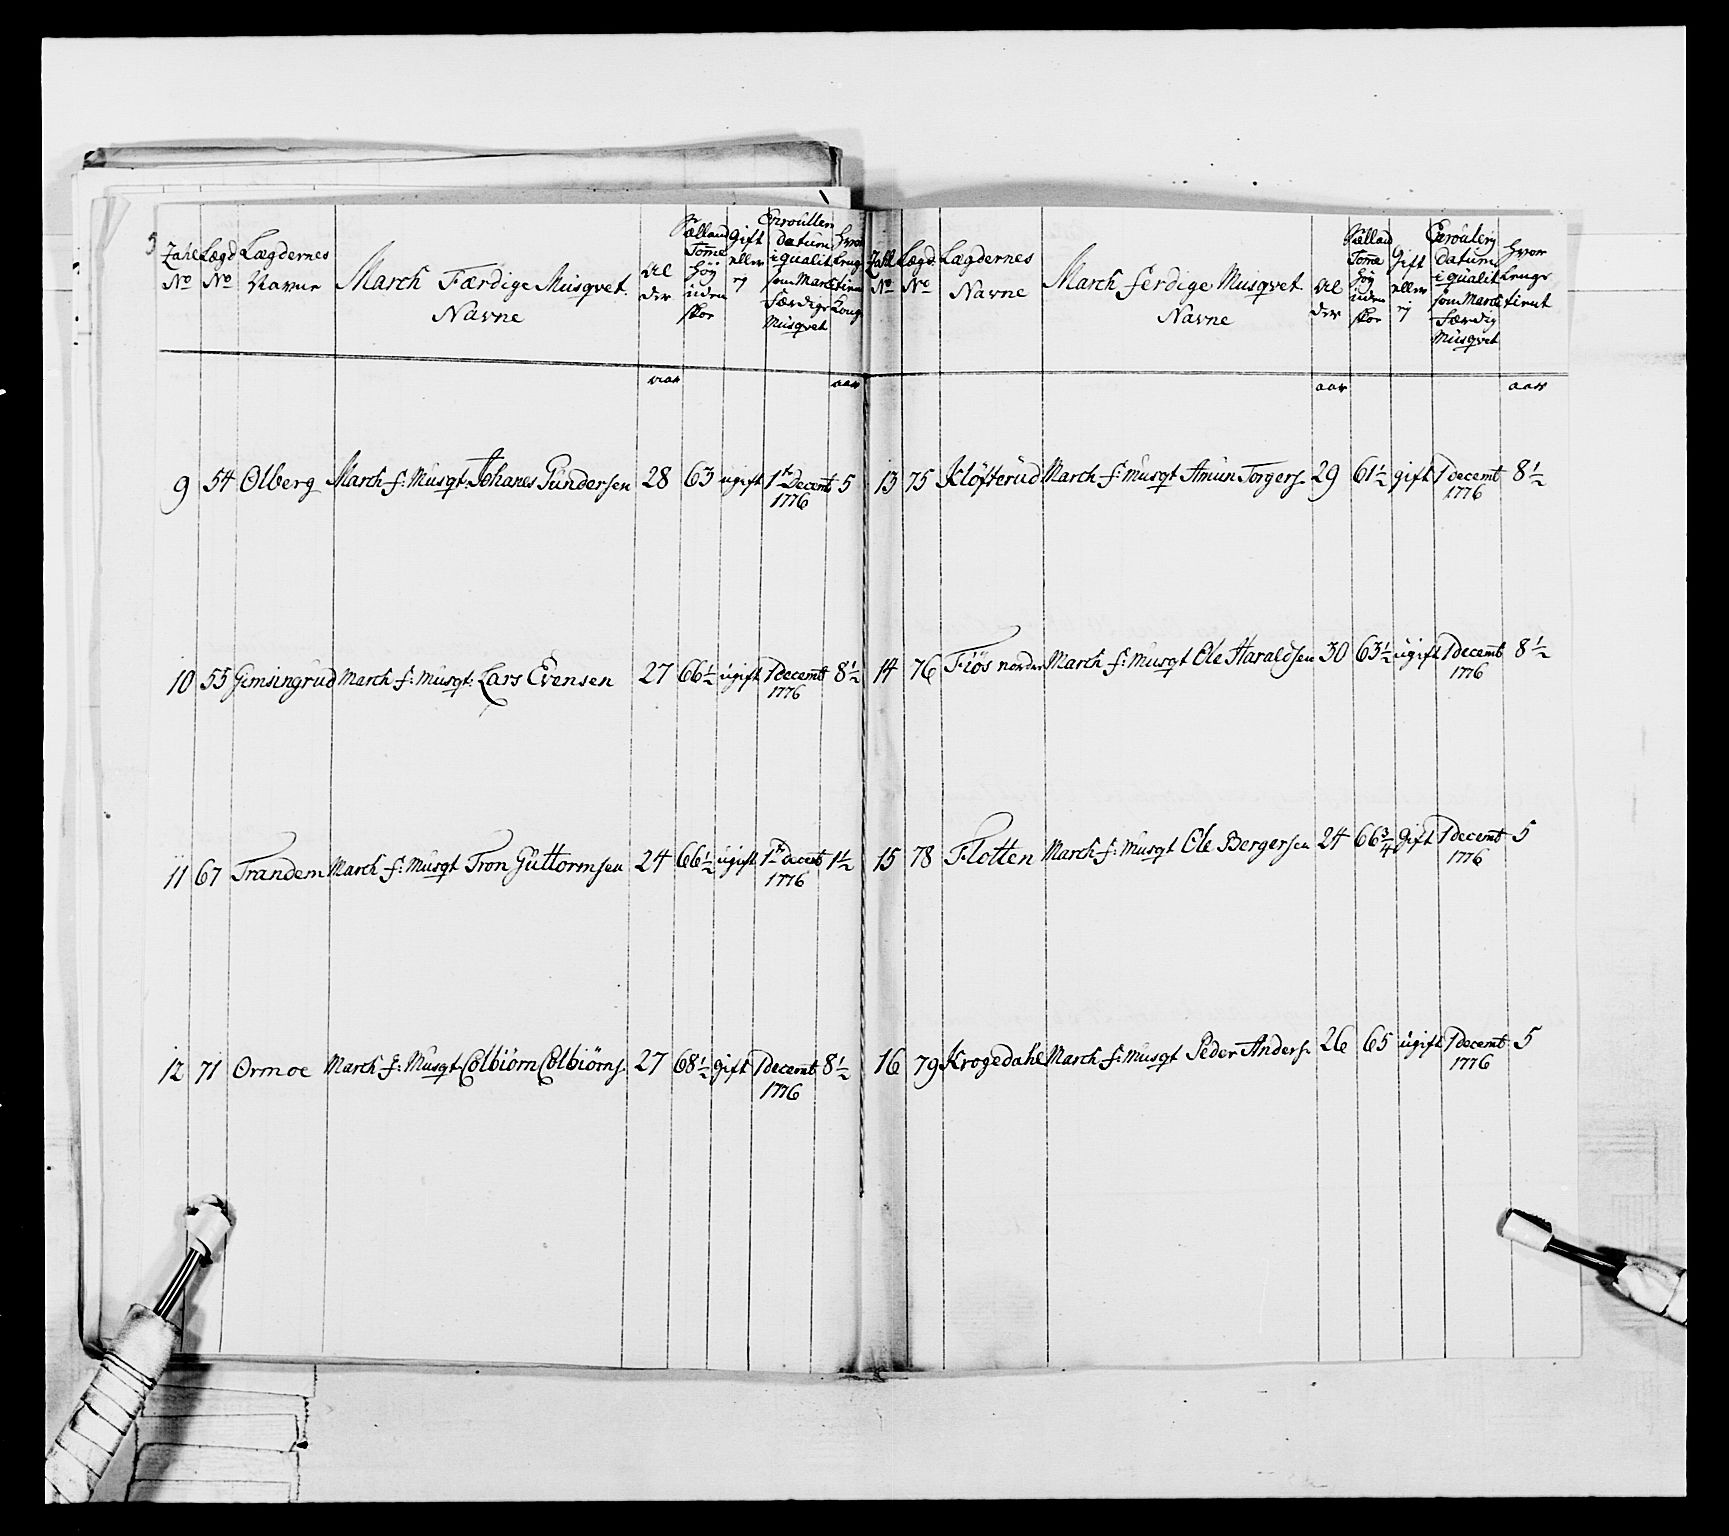 Zahl Lægd Lægdernes March Færdige Musqvet. Al Siælland Gift Enroullerr Hvor
No No Navne Navne der Tom̄e eller datum Leng
høy ej i qualit
uden som March
skoe Færdige
Musqvet
aar aar
9 54 Olberg March f: Musqt: Johanes Gundersen 28 63 ugift 1te Decemb 5
1776
10 55 Gimsingrud March f: Musqt: Lars Evensen 27 66½ ugift 1 decemb 8½
1776
11 67 Trandem March f: Musqt Tron Guttormsen 24 66½ ugift 1te decemb 1½
1776
12 71 Ormoe March f: Musqt Colbiörn Colbiörns. 27 68½ gift 1 decemb 8½
1776
Zahl Lægd. Lægdernes March ferdige Musqvet Al Siælland Gift Datum Hvor
No No Navne Navne der Tom̄e eller i qualit Lenge
høy ej som March tient
uden Færdig
skoe Musqvet
aar aar
13 75 Klöfterud March f: Musqt Amun Torgers. 29 61½ gift 1 decemb 8½
1776
14 76 Fiös norder March f: Musqt Ole Haraldsen 30 63½ ugift 1 decemb 8½
1776
15 78 Flotten March f: Musqt Ole Bergersen 24 66¾ Gift 1 decemb 5
1776
16 79 Krogedahl March f: Musqt Peder Anders. 26 65 ugift 1 decemb 5
1776